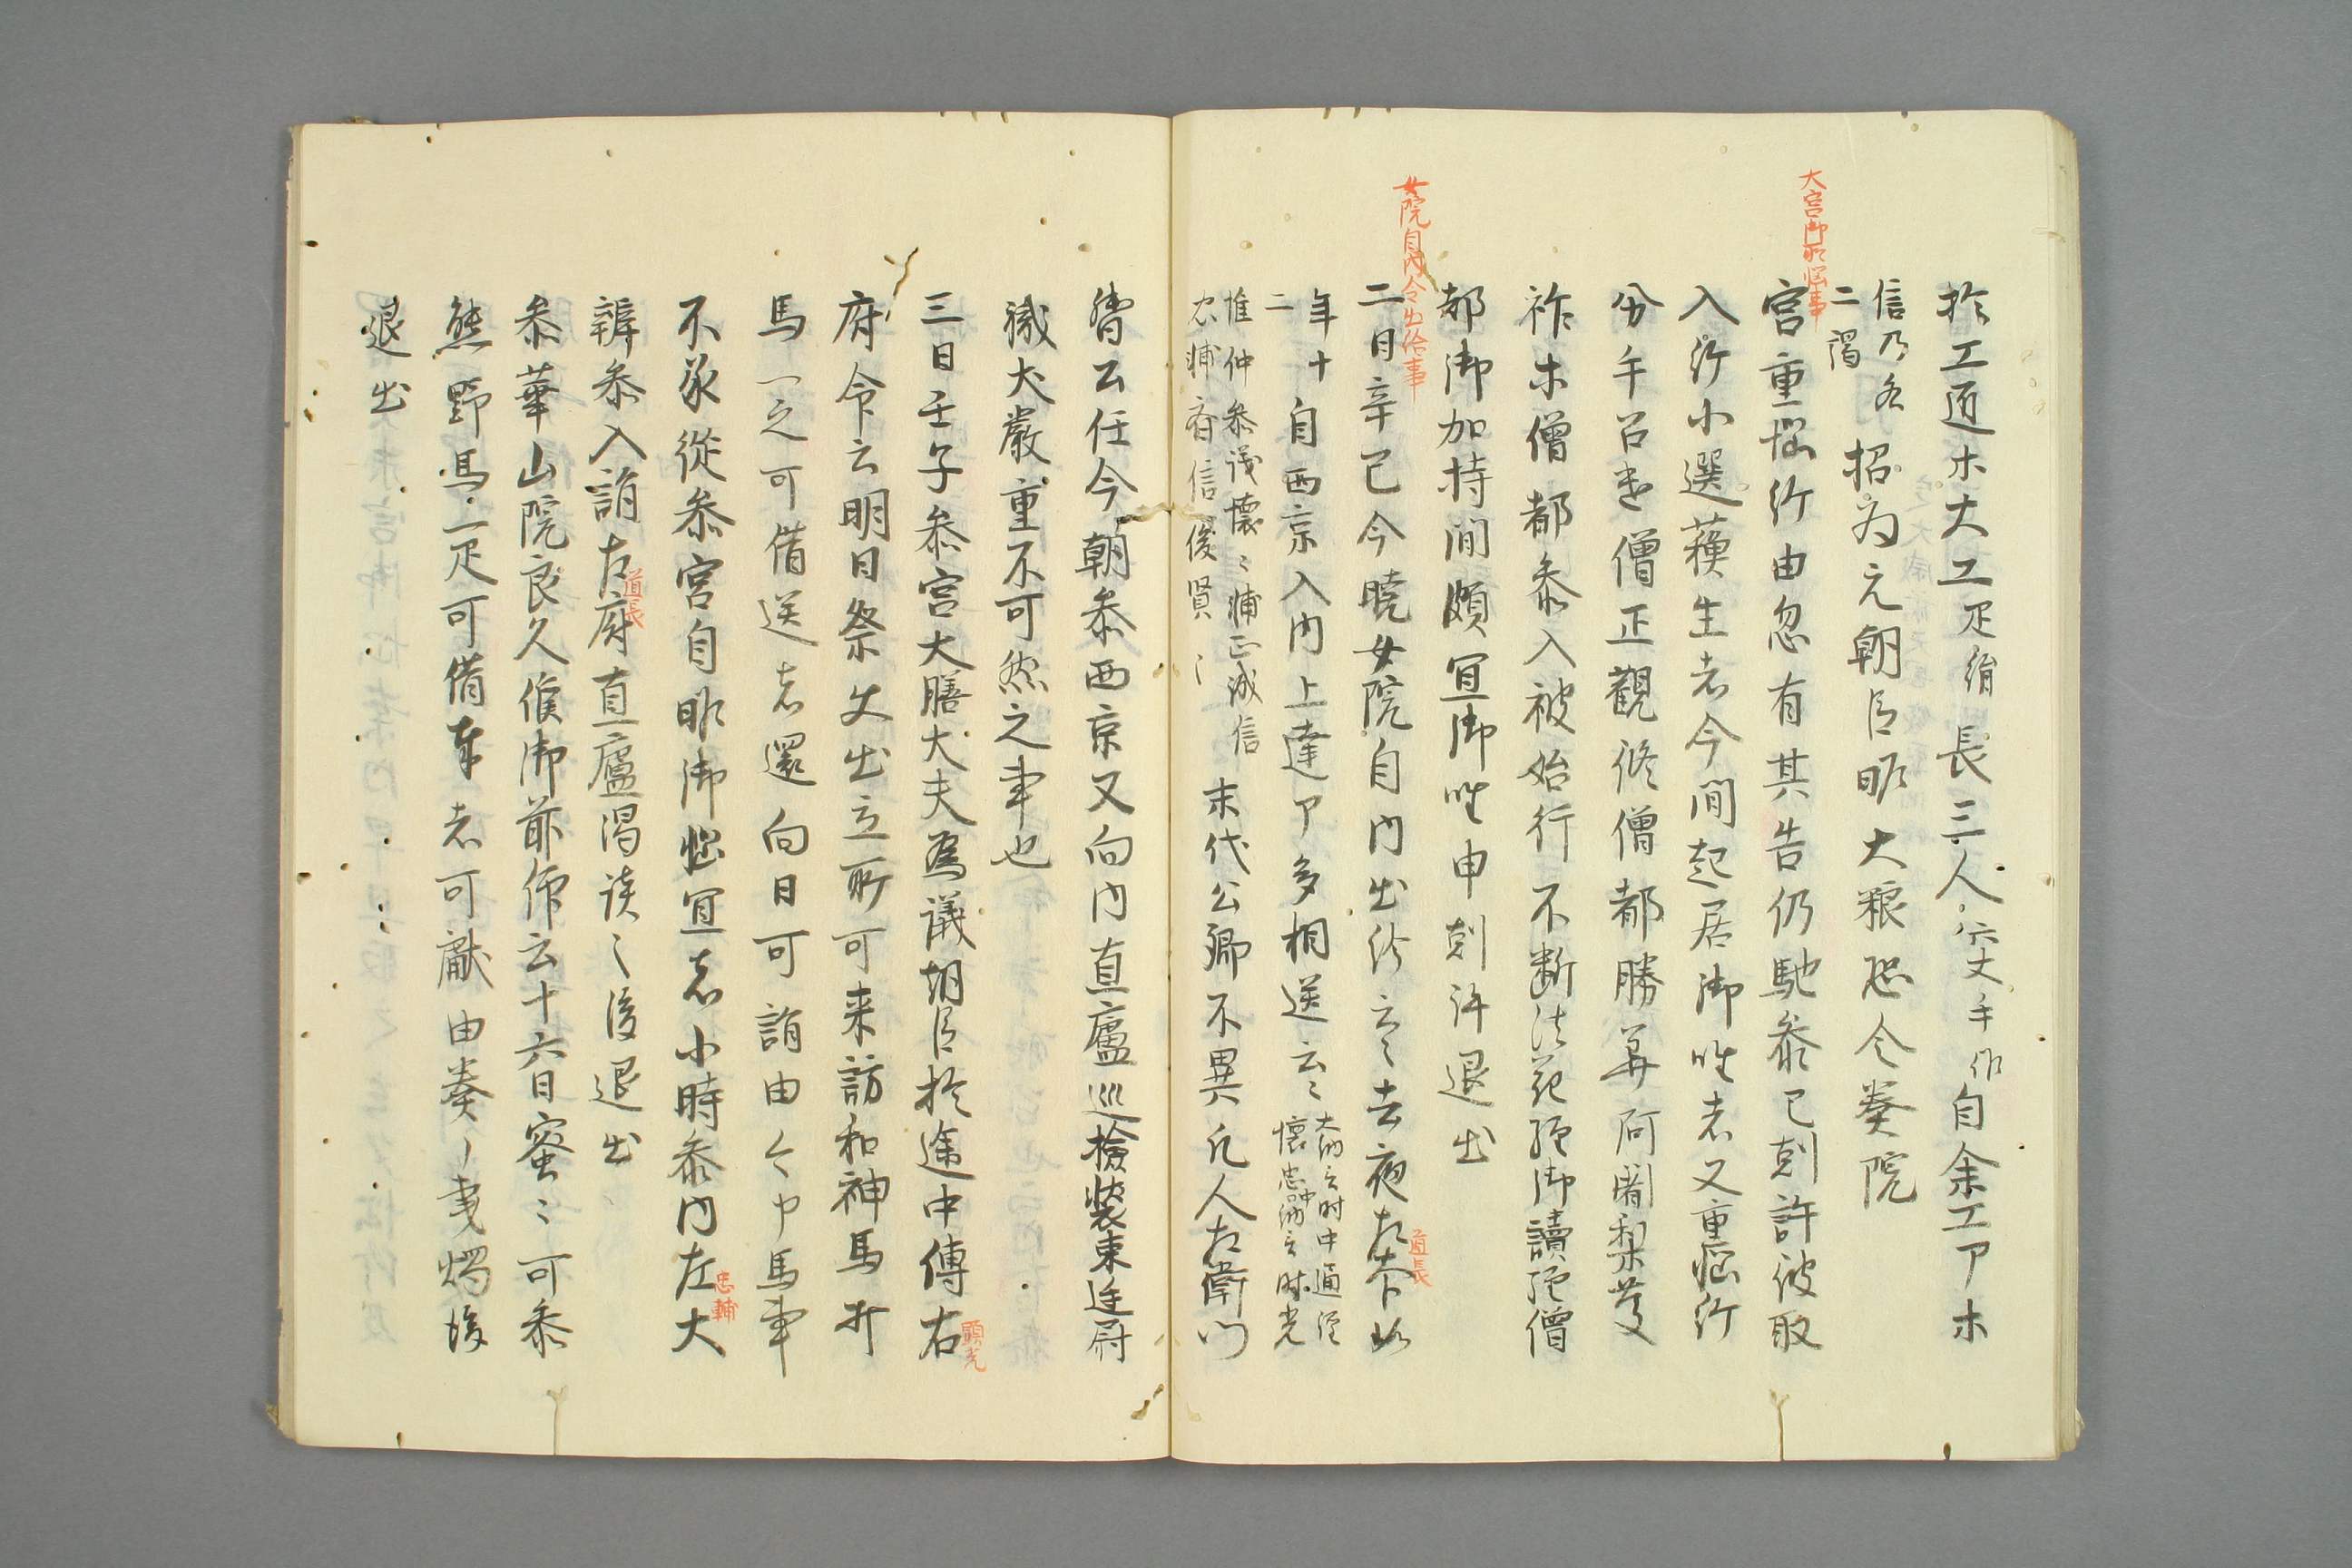 大宮御悩事
於工匠木大工疋絹長三人六丈手作自余工アホ
信乃布
二端
招為元朝臣昨大粮忩令奏院
宮重悩給由忽有其告仍馳参已剋許彼殿
入給小選蘓生者今間起居御唯者又重悩給
分手召遣僧正観修僧都勝算阿闍梨慶
祚木僧都参入被始行不断法花経御読経僧
都御加持間頗宜御唯申剋許退出
女院自内令出給事
二日辛巳今暁女院自内出給云々去夜左大臣以
道長
年十自西京入内上達ア多相送云々
大納言時中道綱
懐忠中納言時光
二
惟仲参議懐々輔正誠信
忠輔斉信俊賢
末代公卿不異凡人左衛門
督公任今朝参西京又向内直廬巡検装束違尉
識大厳重不可然之事也
三日壬子参宮大膳大夫為議朝臣於途中傳右
顕光
府令云明日祭使出立所可来訪和神馬并
馬一疋可借送者還向日可詣由令申馬事
不承従参宮自昨御悩宜者小時参内左大
忠輔
辨参入詣左府直廬謁談之後退出
道長
参華山院良久候御前仰云十六日蜜々可参
熊野馬一疋可借奉者可献由奏了秉燭後
退出